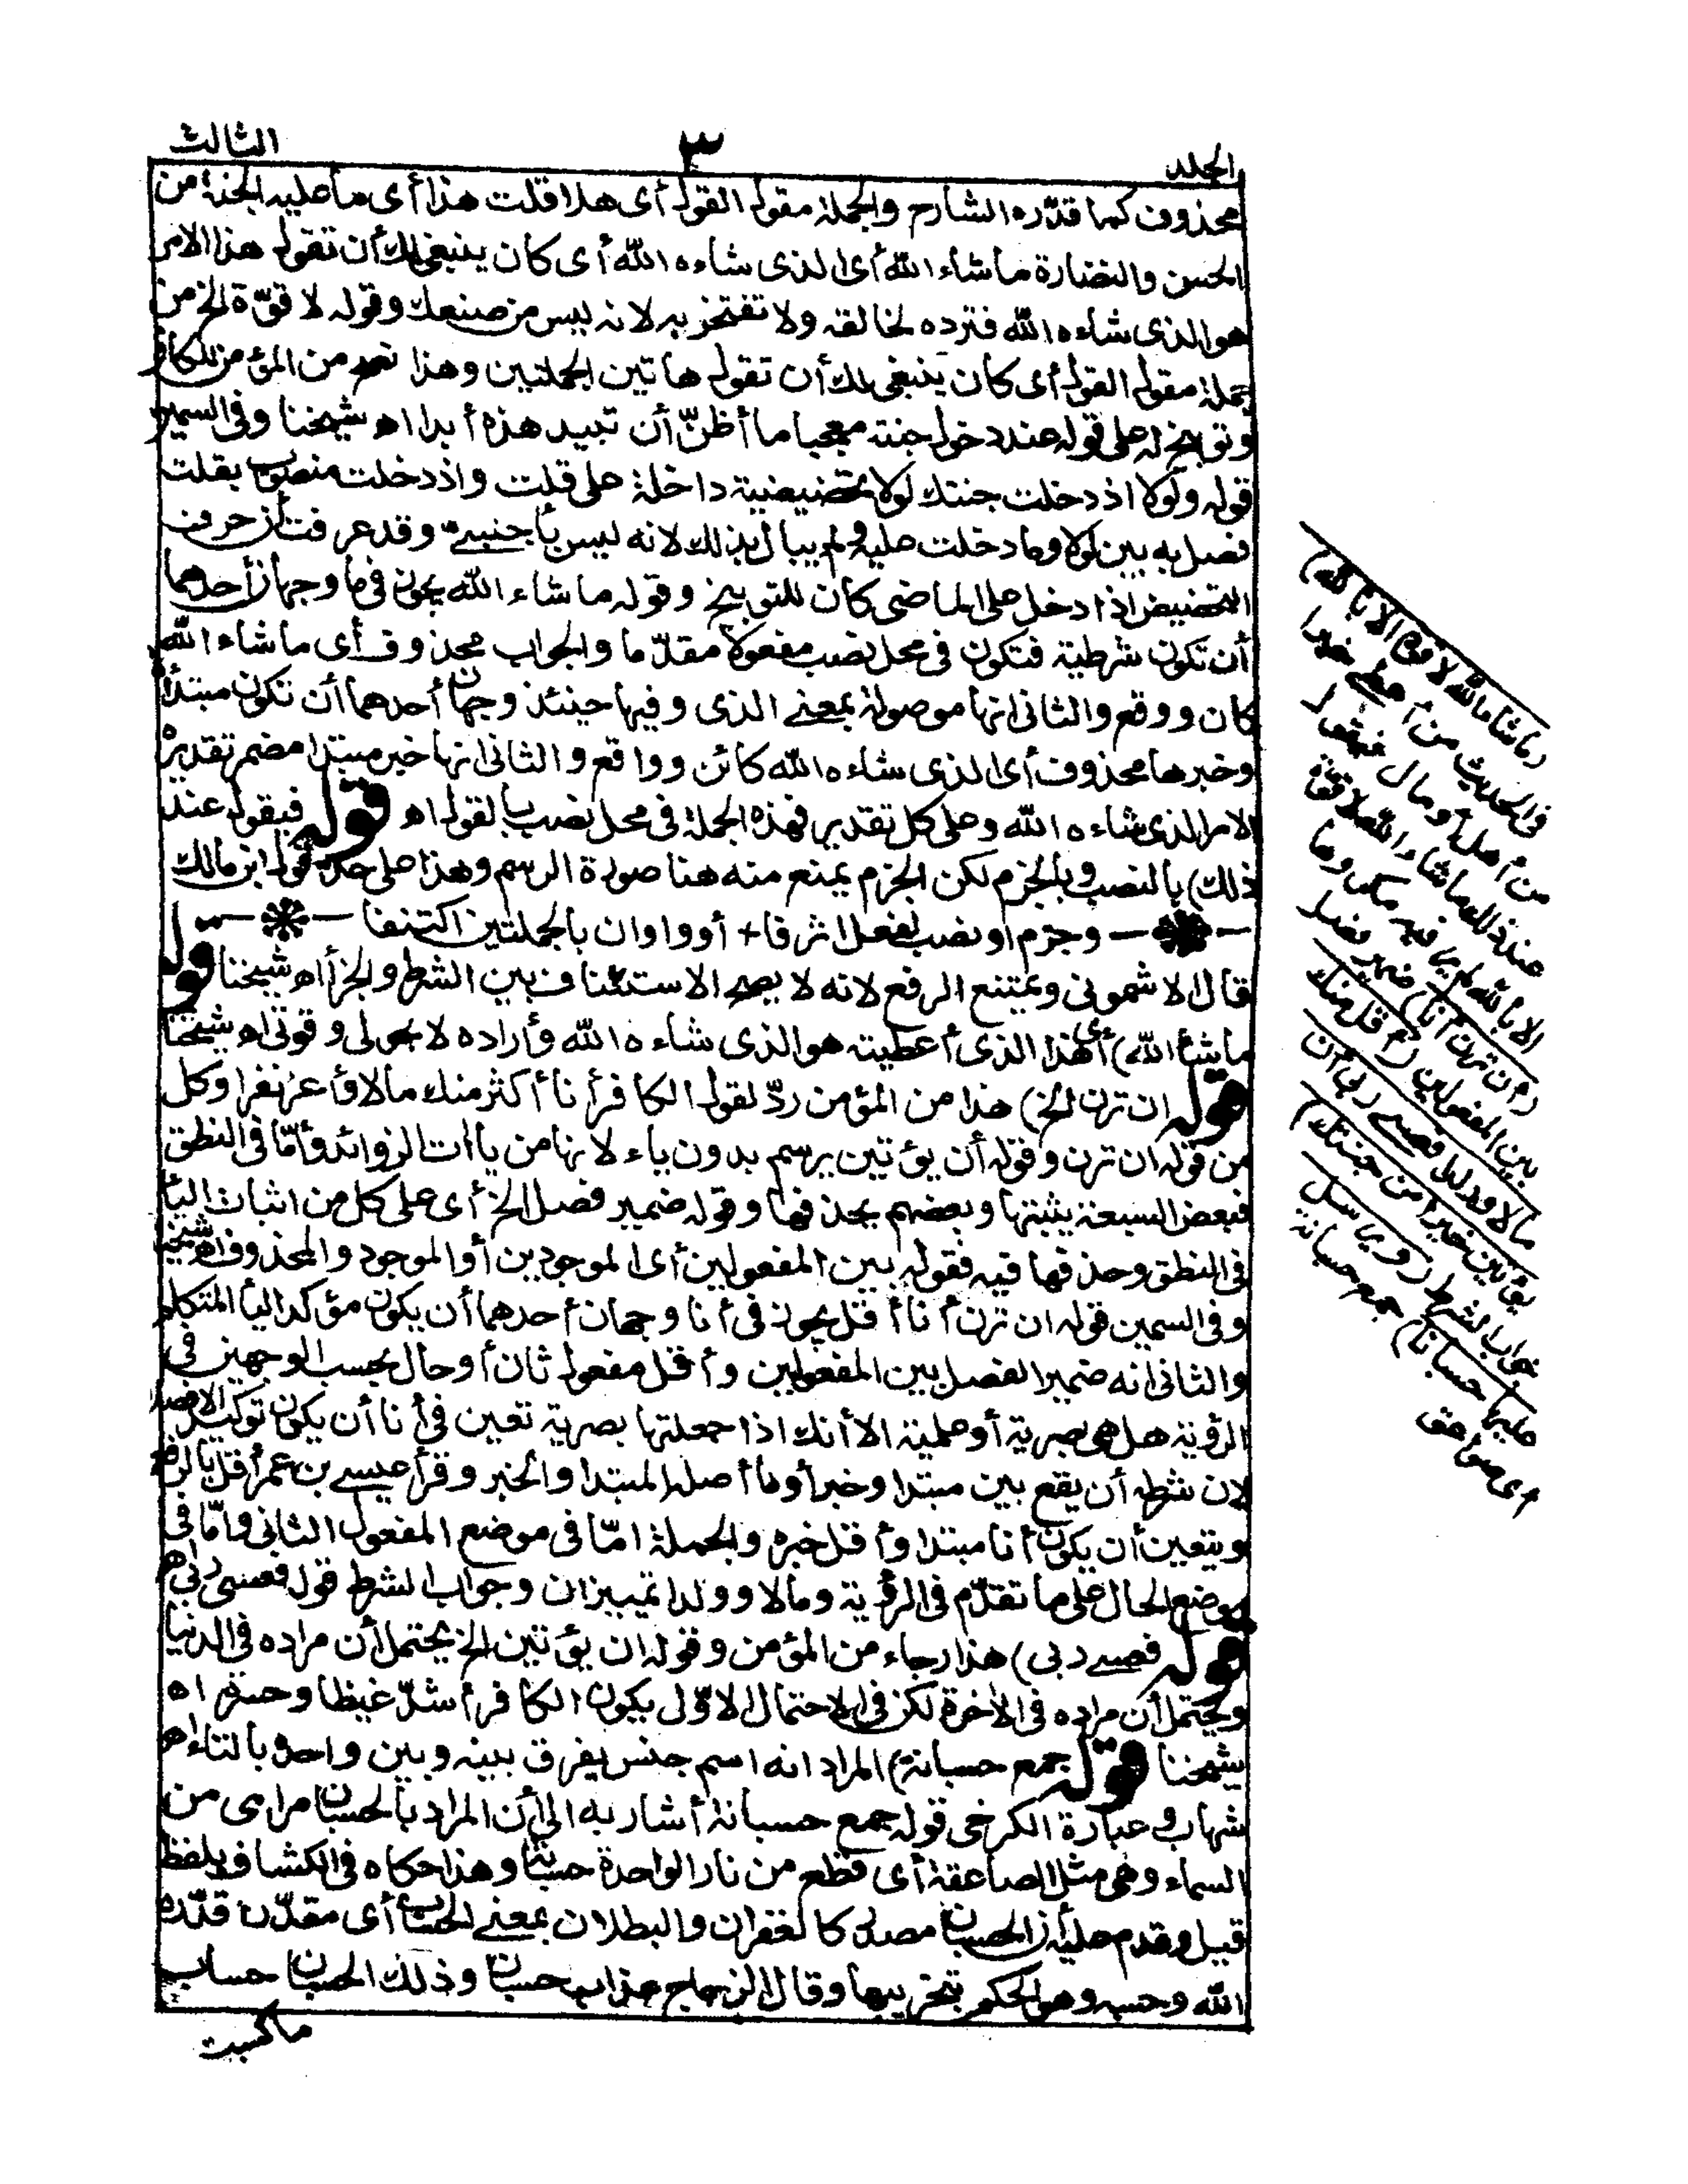 الجلد
٣
الثالث
محذوف كما قدّره الشارح والجملة مقول القول أى هلا قلت هذا أى ما عليه الجنة من
الحسن والنضارة ما شاء الله أى الذى شاءه الله أى كان ينبغى لك أن تقول هذا الامر
هو الذى شاءه الله فترده لخالقه ولا تفتخر به لانه ليس من صنعك وقوله لا قوّة الخ من
جملة مقول القول أى كان ينبغى لك أن تقول هاتين الجملتين وهذا نصح من المؤمن للكافر
وتوبيخ له على قوله عند دخول جنته معجبا ما أظنّ أن تبيد هذه أبدا اه شيخنا وفى السمين
قوله ولولا اذ دخلت جنتك لولا تحضيضية داخلة على قلت واذ دخلت منصوب بقلت
فصل به بين لولا وما دخلت عليه ولم يبال بذلك لانه ليس بأجنبىّ وقد عرفت أن حرف
التحضيض اذا دخل على الماضى كان للتوبيخ وقوله ما شاء الله يجوز فى ما وجهان أحدهما
أن تكون شرطية فتكون فى محل نصب مفعولا مقدّما والجواب محذوف أى ما شاء الله
كان ووقع والثانى انها موصولة بمعنى الذى وفيها حينئذ وجهان أحدهما أن تكون مبتدأ
وخبرها محذوف أى الذى شاءه الله كائن وواقع والثانى انها خبر مبتدا مضمر تقديره
الامر الذى شاءه الله وعلى كل تقدير فهذه الجملة فى محل نصب بالقول اه قوله فيقول عند
ذلك) بالنصب وبالجزم لكن الجزم يمنع منه هنا صورة الرسم وهذا على حد قول ابن مالك
وجزم او نصب لفعل اثر فا + أو واو ان بالجملتين اكتنفا
قال الاشمونى ويمتنع الرفع لانه لا يصح الاستئناف بين الشرط والجزأ اه شيخنا قوله
ما شأ الله) أى هذا الذى أعطيته هو الذى شاءه الله وأراده لا بحولى وقوتى اه شيخنا
قوله ان ترن الخ) هذا من المؤمن ردّ لقول الكافر أنا أكثر منك مالا وأعز نفرا وكل
من قوله ان ترن وقوله أن يؤتين يرسم بدون ياء لانها من ياآت الزوائد وأمّا فى النطق
فبعض السبعة يثبتها وبعضهم يحذفها وقوله ضمير فصل الخ أى على كل من اثبات اليأ
فى النطق وحذفها فيه فقوله بين المفعولين أى الموجودين أو الموجود والمحذوف اه شيخنا
وفى السمين قوله ان ترن أنا أقل يجوز فى أنا وجهان أحدهما أن يكون مؤكدا ليأ المتكلم
والثانى انه ضمير الفصل بين المفعولين وأقل مفعول ثان أو حال بحسب الوجهين فى
الرؤية هل هى بصرية أو علمية الا أنك اذا جعلتها بصرية تعين فى أنا أن يكون توكيدا لا فصلا
لان شرطه أن يقع بين مبتدا وخبر أو ما أصله المبتدا والخبر وقرأ عيسى بن عمر أقل بالرفع
ويتعين أن يكون أنا مبتدا وأقل خبره والجملة امّا فى موضع المفعول الثانى وامّا فى
موضع الحال على ما تقدّم فى الرؤية ومالا وولدا تمييزان وجواب الشرط قوله فعسى ربى اه
قوله فعسى ربى) هذا رجاء من المؤمن وقوله ان يؤتين الخ يحتمل أن مراده فى الدنيا
ويحتمل أن مراده فى الآخرة لكن فى الاحتمال الاوّل يكون الكافر أشدّ غيظا وحسرة اه
شيخنا قوله جمع حسبانة) المراد انه اسم جنس يفرق بينه وبين واحده بالتاء اه
شهاب وعبارة الكرخى قوله جمع حسبانة أشار به الى أن المراد بالحسبان مرامى من
السماء وهى مثل الصاعقة أى قطع من نار الواحدة حسبانة وهذا حكاه فى الكشاف بلفظ
قيل وقدم عليه أن الحسبان مصدر كالغفران والبطلان بمعنى الحساب أى مقدّرا قدّره
الله وحسبه وهو الحكم بتخريبها وقال الزجاج عذاب حسبان وذلك الحسبان حساب
ما كسبت
(ما شاء الله لا قوة الا بالله)
فى الحديث من أعطى خيرا
من أهل أو مال فيقول
عند ذلك ما شاء الله لا قوّة
الا بالله لم ير فيه مكروها
(ان ترن أنا) ضمير فصل
بين المفعولين (أقل منك
مالا وولدا فعسى ربى أن
يؤتين خيرا من جنتك)
جواب الشرط (ويرسل
عليها حسبانا) جمع حسبانة
أى صواعق